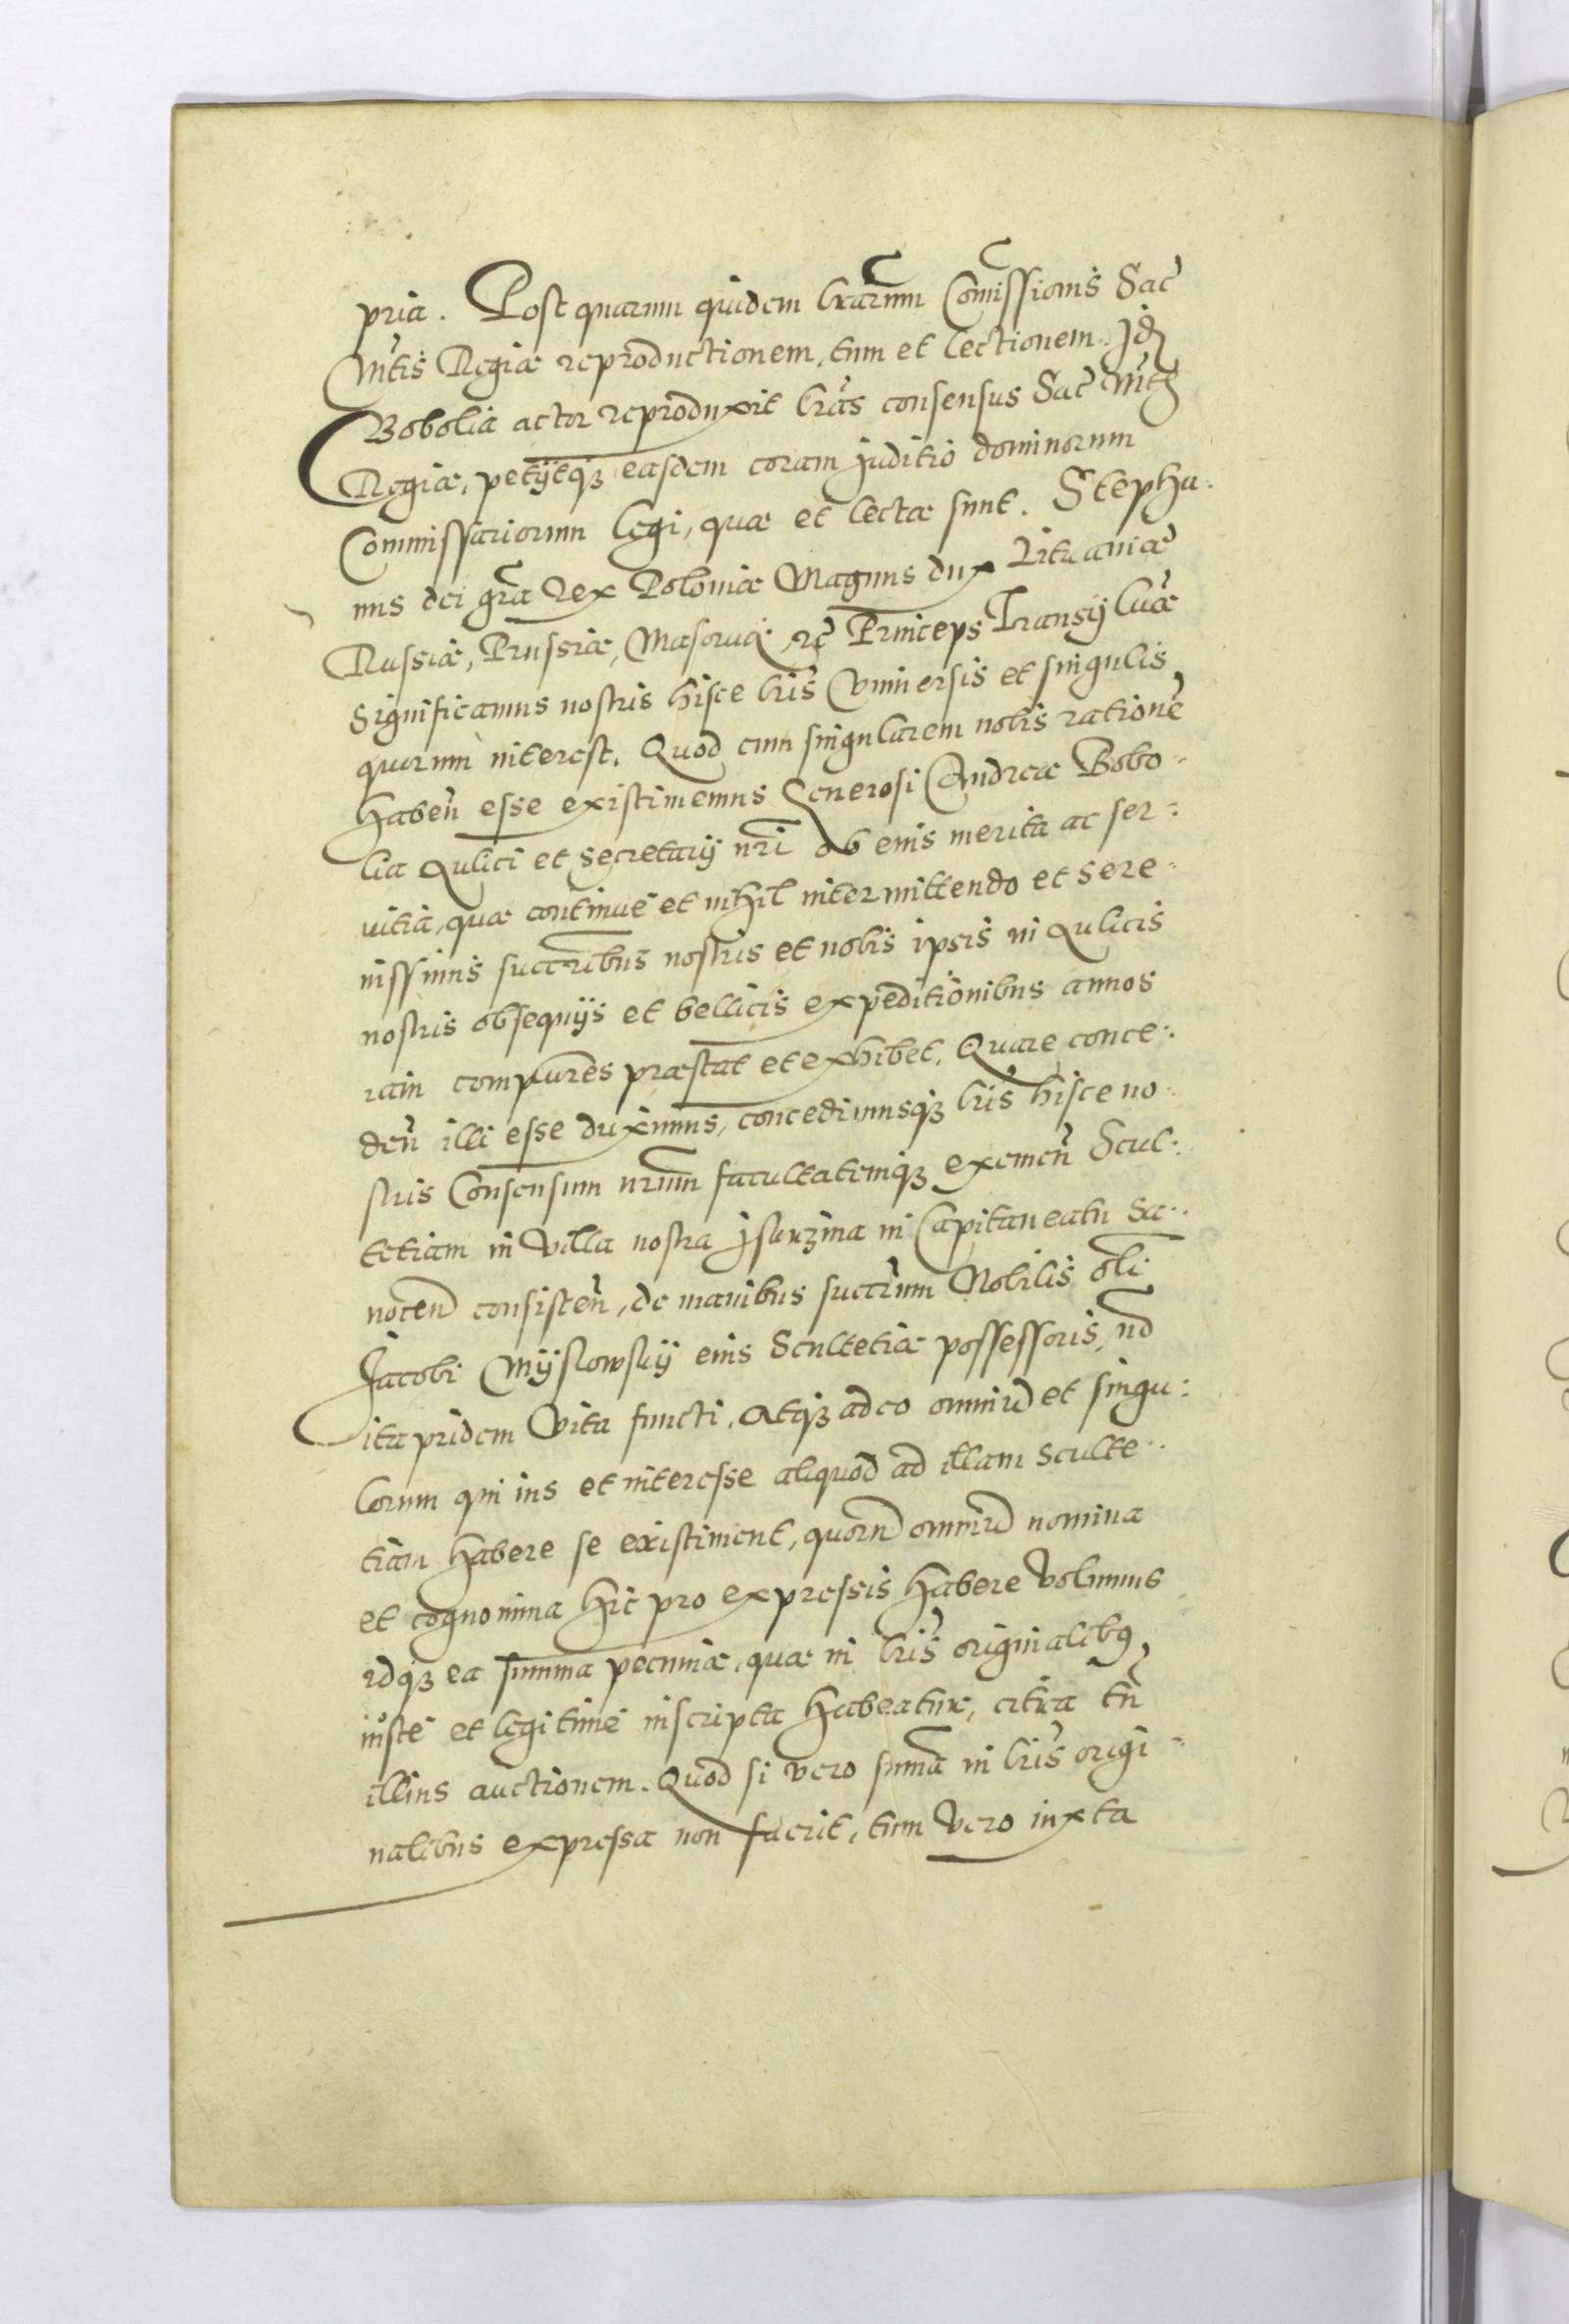 pria. Post quarum quidem lrarum Comissionis Sac
Mtis Regiæ reproductionem, tum et lectionem. Jdē
Bobolia actor reproduxit lras consensus Sac Mtis
Regiæ, petijtqꝫ easdem coram juditio dominorum
Commissariorum legi, quæ et lectæ sunt. Stepha:
nus dei gra Rex Poloniæ Magnus dux Lituaniæ
Russiæ, Prussiæ, Masouiæ, ꝛc Princeps Transyluæ
Significamus nostris hisce lris Vniuersis et singulis
quorum interest. Quod cum singularem nobis rationē
haben esse existimemus Generosi Andreæ Bobo-
lia Aulici et Secretarij nri ob eius merita ac ser:
uitia, quæ continuè et nihil intermittendo et Sere-
nissimis succribus nostris et nobis ipsis in Aulicis
nostris obsequijs et bellicis expeditionibus annos
iam complures præstat et exhibet. Quare conce:
den illi esse duximus, concedimusqꝫ lris hisce no-
stris Consensum nrum facultatemqꝫ exemen Scul:
tetiam in Villa nostra Jsurzina in Capitaneatu Sa:
nocen consisten, de manibus succrum Nobilis oli
Jacobi Myslowskij eius Scultetiæ possessoris, nō
ita pridem Vita functi. Atqꝫ adeo omniū et singu:
lorum qui ius et interesse aliquod ad illam Sculte-
tiam habere se existiment, quorū omniū nomina
et cognomina hic pro expressis habere Volumus
idqꝫ ea summa pecuniæ, quæ in lris originalibꝰ
iustè et legitimè inscripta habeatur, citra tn
illius auctionem. Quod si vero suma in lris origi-
nalibus expressa non fuerit, tum vero iuxta